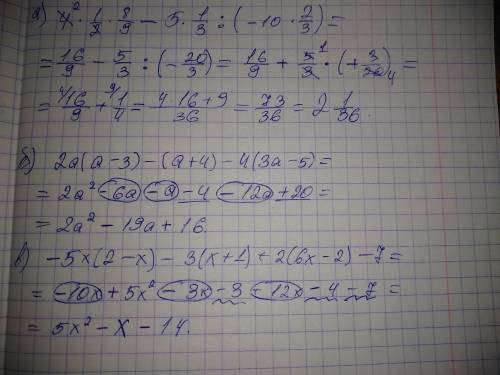 а) 4² · 1/2 · 8/9 − 5 · 1/3 : (−10 · 2/3) =
= 16/9 − 5/3 : (−20/3) = 16/9 + 5¹/3 · (+3/20₄) =
= ⁴16/9 + ⁹1/4 = 4·16+9/36 = 73/36 = 2 1/36.
б) 2a(a−3) − (a+4) − 4(3a−5) =
= 2a² − 6a − a − 4 − 12a + 20 =
= 2a² − 19a + 16.
в) −5x(2−x) − 3(x+1) + 2(6x−2) − 7 =
= −10x + 5x² − 3x − 3 + 12x − 4 − 7 =
= 5x² − x − 14.